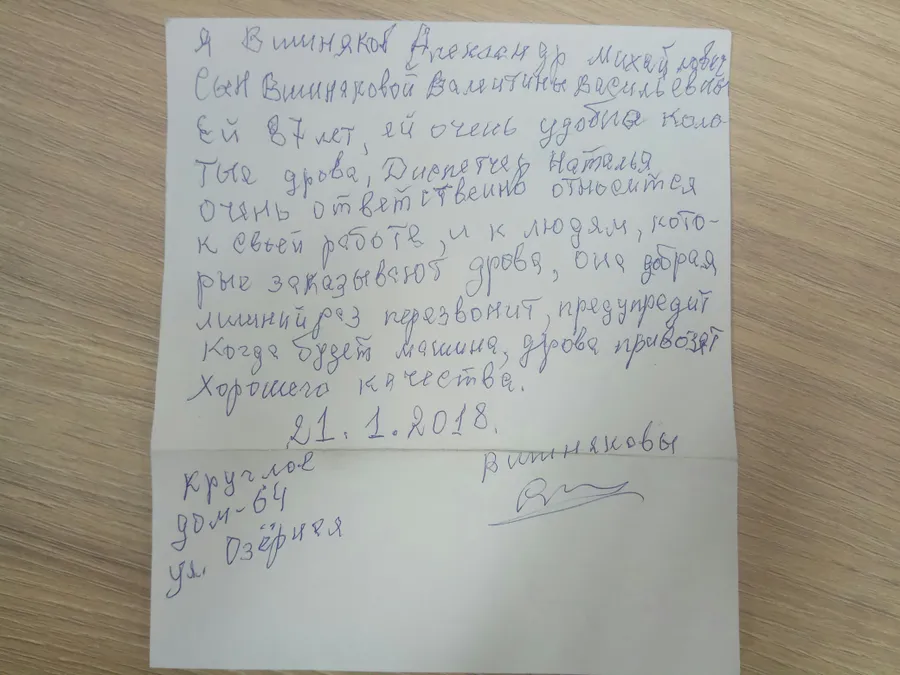 Я Вишняков Александр Михайлович
Сын Вишняковой Валентины Васильевны
Ей 87 лет, ей очень удобна коло-
тые дрова, Диспетчер Наталья
очень ответственно относится
к своей работе, и к людям, кото-
рые заказывают дрова, она добрая
лишний раз перезвонит, предупредит
когда будет машина, дрова привозят
хорошего качества.
21.1.2018.
Вишняковы
Круглое
дом-64
ул. Озёрная